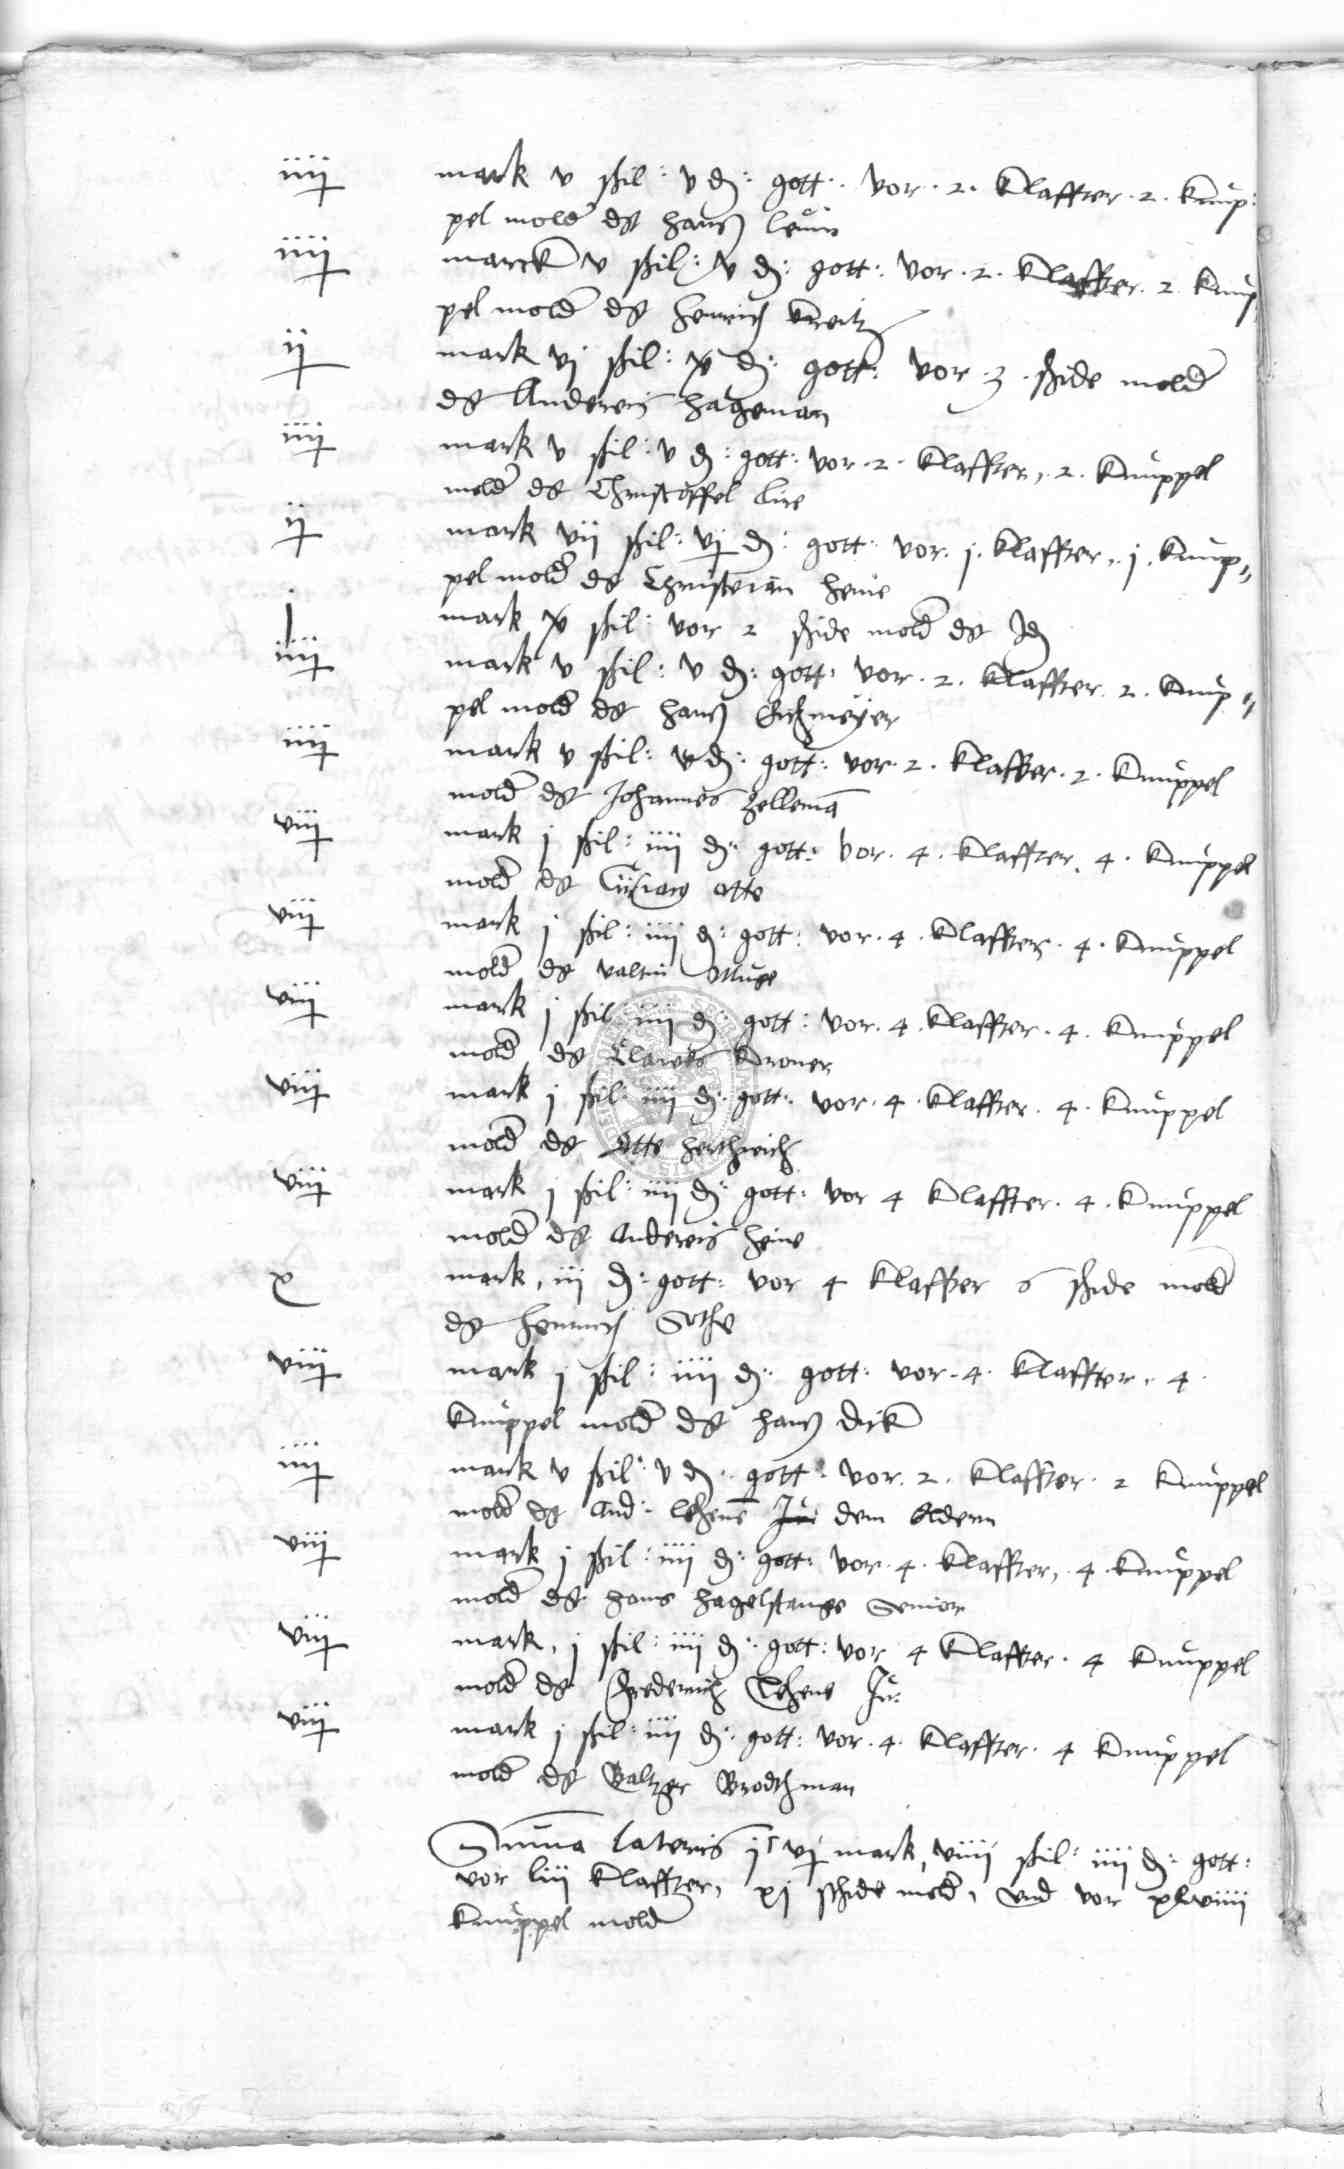 iiij mark v ßil: v d: gott: vor .2. Klaffter .2. Knup:
pel molder dt hans leuin
iiij marck v ßil: v d: gott: vor .2. Klaffter .2. Knup
pel molder dt Henrich
ij mark vj ßil: x d: gott: vor .3. ßide molder
dt Anderes Hageman
iiij mark v ßil: v d: gott: vor .2. Klaffter, .2. Knuppel
molder dt Christoffel
ij mark vij ßil: vj d: gott: vor .j. Klaffter, .j. Knup„
pel molder dt Christian Heine
j mark x ßil: vor 2 ßide molder dt Id
iiij mark v ßil: v d: gott: vor .2. Klaffter .2. Knup„
pel molder dt hans
iiij mark v ßil: v d: gott: vor .2. Klaffter .2. Knuppel
molder dt Johannes Zelleman
viij mark j ßil: iiij d: gott: vor .4. Klaffter .4. Knuppel
molder dt otte
viij mark j ßil: iiij d: gott: vor .4. Klaffter .4. Knuppel
molder dt valtin
viij mark j ßil: iiij d: gott: vor .4. Klaffter .4. Knuppel
molder dt Clawes Kroner
viij mark j ßil: iiij d: gott: vor .4. Klaffter .4. Knuppel
molder dt Otte
viij mark j ßil: iiij d: gott: vor 4 Klaffter .4. Knuppel
molder dt Anderes Heine
x mark, iij d: gott: vor 4 Klaffter 6 ßide molder
dt Henrich Sothe
viij mark j ßil: iiij d: gott: vor .4. Klaffter, 4
Knuppel molder dt hans dirk
iiij mark v ßil: v d: gott: vor .2. Klaffter .2 Knuppel
molder dt And: dem Eldern
viij mark j ßil: iiij d: gott: vor .4. Klaffter, .4. Knuppel
molder dt hans hagelstange Senior
viij mark, j ßil: iiij d: gott: vor 4 Klaffter. 4 Knuppel
molder dt Frederich Ju:
viij mark j ßil: iiij d: gott: vor .4. Klaffter. 4 Knuppel
molder dt Baltzer Brodthman
Summa lateris jc vj mark, viiij ßil: iiij d: gott:
vor liij Klaffter, xj schide molder, und vor xlviiij
Knuppel molder